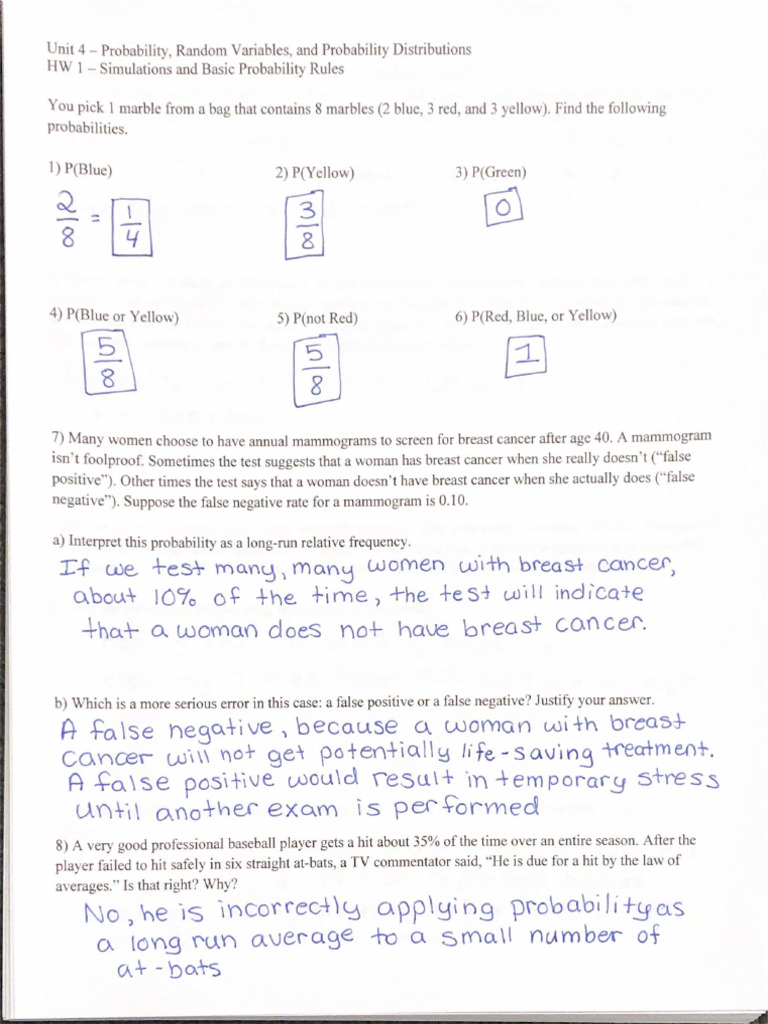 Unit 4 – Probability, Random Variables, and Probability Distributions
HW 1 – Simulations and Basic Probability Rules
You pick 1 marble from a bag that contains 8 marbles (2 blue, 3 red, and 3 yellow). Find the following
probabilities.
1) P(Blue) 2) P(Yellow) 3) P(Green)
2/8 = 1/4 3/8 0
4) P(Blue or Yellow) 5) P(not Red) 6) P(Red, Blue, or Yellow)
5/8 5/8 1
7) Many women choose to have annual mammograms to screen for breast cancer after age 40. A mammogram
isn't foolproof. Sometimes the test suggests that a woman has breast cancer when she really doesn't ("false
positive"). Other times the test says that a woman doesn't have breast cancer when she actually does ("false
negative"). Suppose the false negative rate for a mammogram is 0.10.
a) Interpret this probability as a long-run relative frequency.
If we test many, many women with breast cancer,
about 10% of the time, the test will indicate
that a woman does not have breast cancer.
b) Which is a more serious error in this case: a false positive or a false negative? Justify your answer.
A false negative, because a woman with breast
cancer will not get potentially life-saving treatment.
A false positive would result in temporary stress
until another exam is performed
8) A very good professional baseball player gets a hit about 35% of the time over an entire season. After the
player failed to hit safely in six straight at-bats, a TV commentator said, "He is due for a hit by the law of
averages." Is that right? Why?
No, he is incorrectly applying probability as
a long run average to a small number of
at-bats